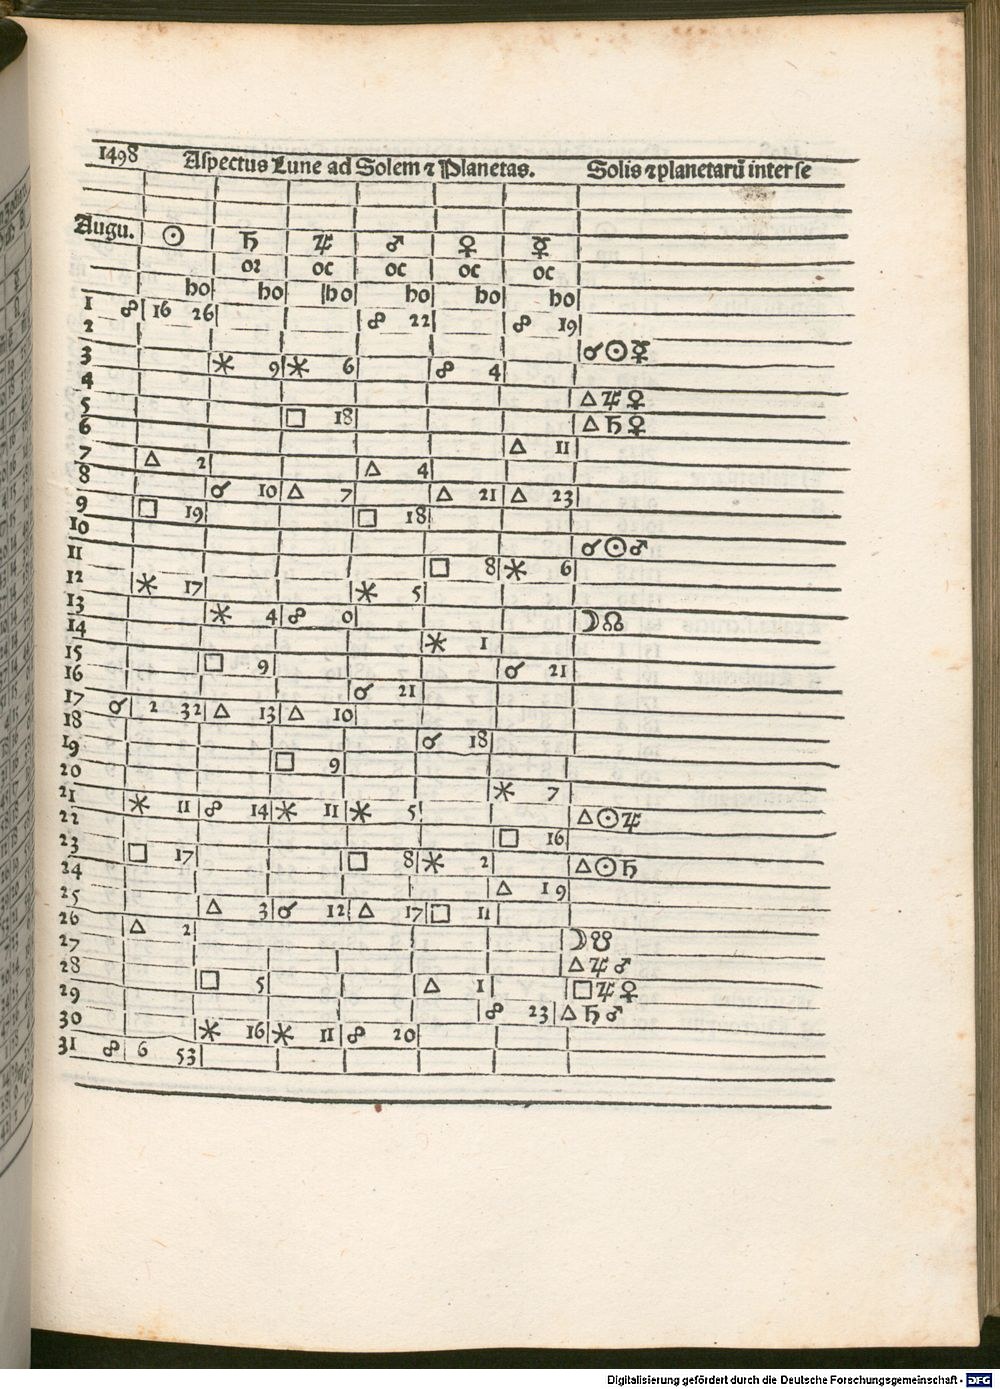 1498 Aspectus Lune ad Solem ⁊ Planetas. Solis ⁊ planetarū inter se
Augu. ☉ ♄ ♃ ♂ ♀ ☿
oꝛ oc oc oc oc
ho ho ho ho ho ho
1 ☍ 16 26 ☍ 22 ☍ 19
2 ☌ ☉ ☿
3 ✶ 9 ✶ 6 ☍ 4
4 △ ♃ ♀
5 □ 18 △ ♄ ♀
6 △ 11
7 △ 2 △ 4
8 ☌ 10 △ 7 △ 21 △ 23
9 □ 19 □ 18
10 ☌ ☉ ♂
11 □ 8 ✶ 6
12 ✶ 17 ✶ 5
13 ✶ 4 ☍ 0 ☽ ☊
14 ✶ 1
15 □ 9 ☌ 21
16 ☌ 21
17 ☌ 2 32 △ 13 △ 10
18 ☌ 18
19 □ 9
20 ✶ 7
21 ✶ 11 ☍ 14 ✶ 11 ✶ 5 △ ☉ ♃
22 □ 16
23 □ 17 □ 8 ✶ 2 △ ☉ ♄
24 △ 19
25 △ 3 ☌ 12 △ 17 □ 11
26 △ 2 ☽ ☋
27 △ ♃ ♂
28 □ 5 △ 1 □ ♃ ♀
29 ☍ 23 △ ♄ ♂
30 ✶ 16 ✶ 11 ☍ 20
31 ☍ 6 53
Digitalisierung gefördert durch die Deutsche Forschungsgemeinschaft - DFG